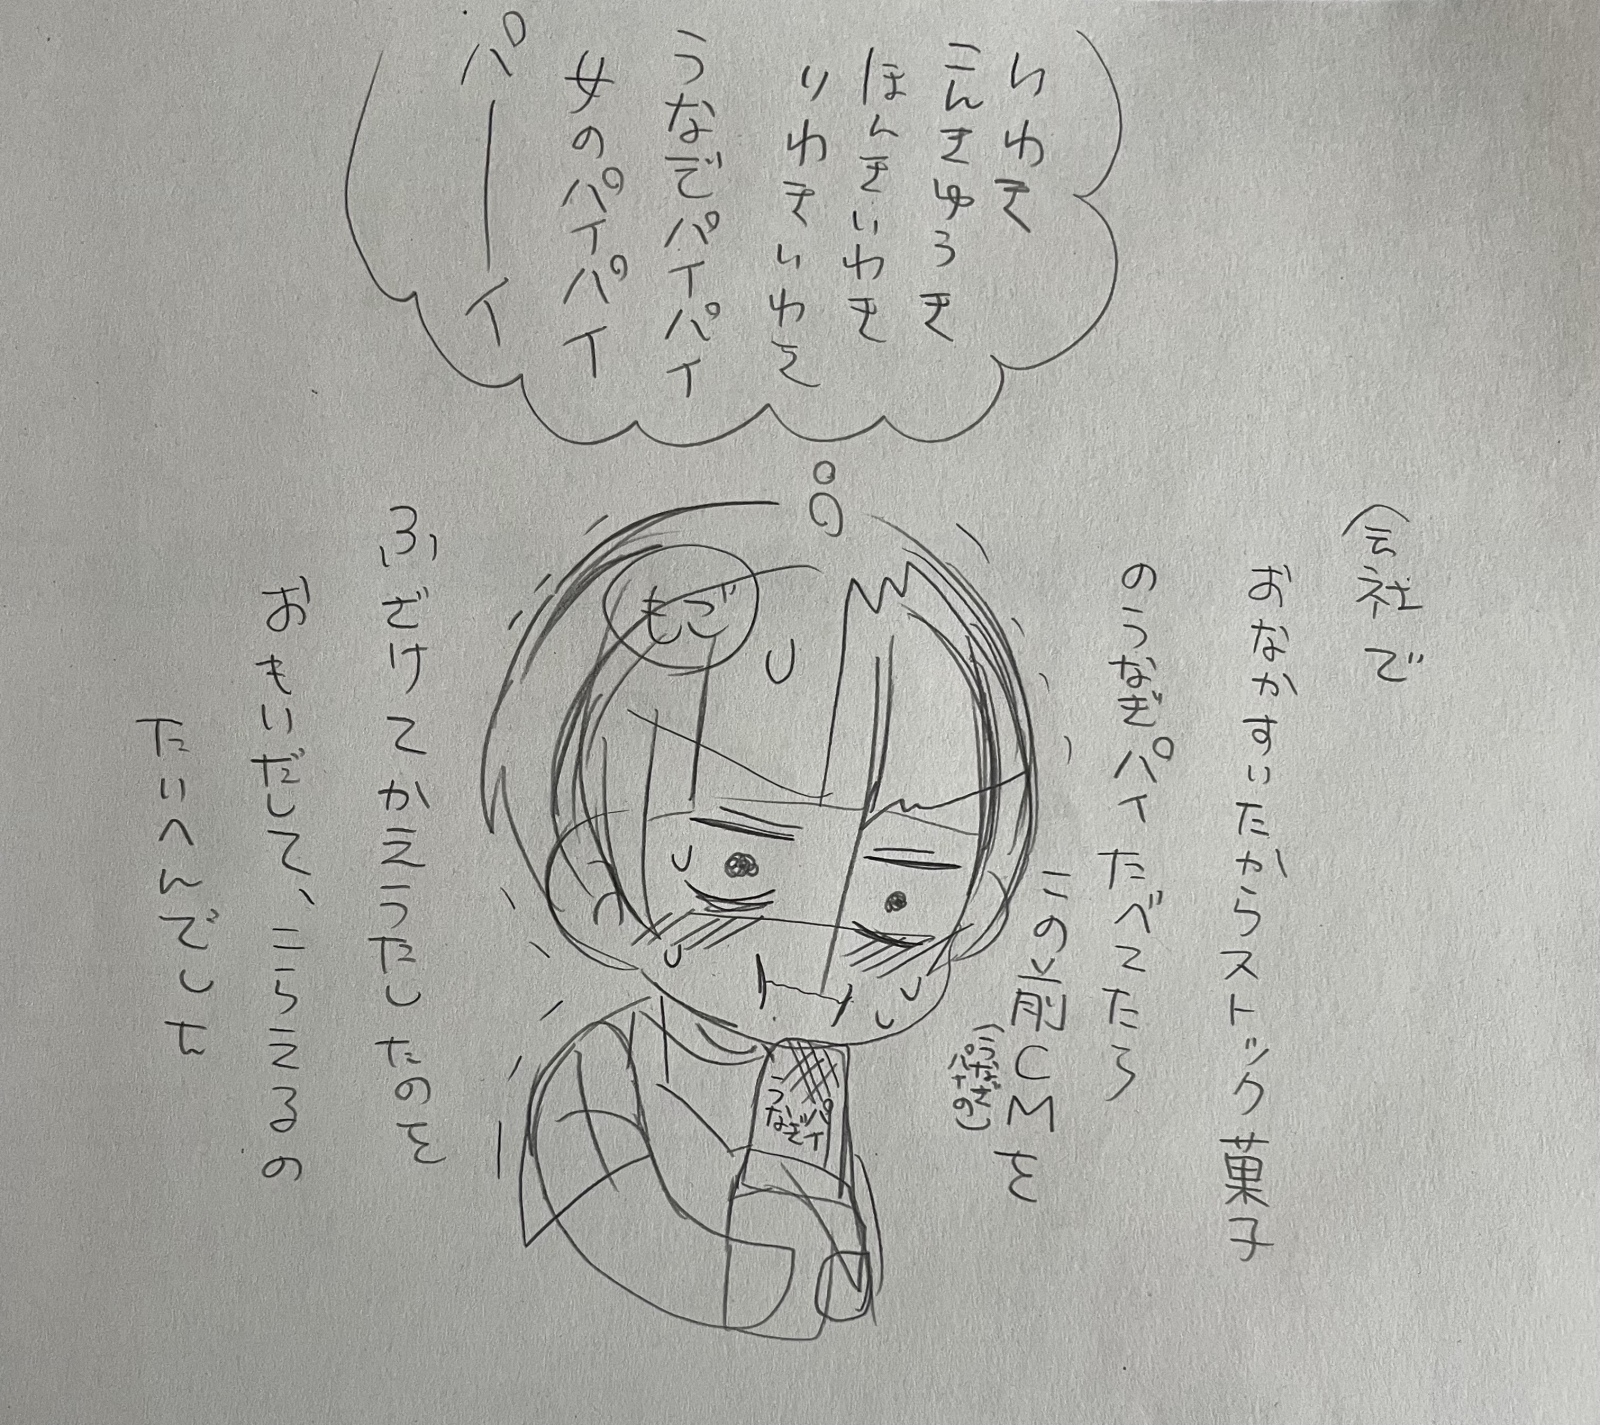 いわき
こんきゅうき
ほんきいわき
りわきいわき
うなでパイパイ
女のパイパイ
パーーイ
会社で
おなかすいたからストック菓子
のうなぎパイたべてたら
この前CMを
ふざけてかえうたしたのを
おもいだして、こらえるの
たいへんでした
もご
うなぎパイ